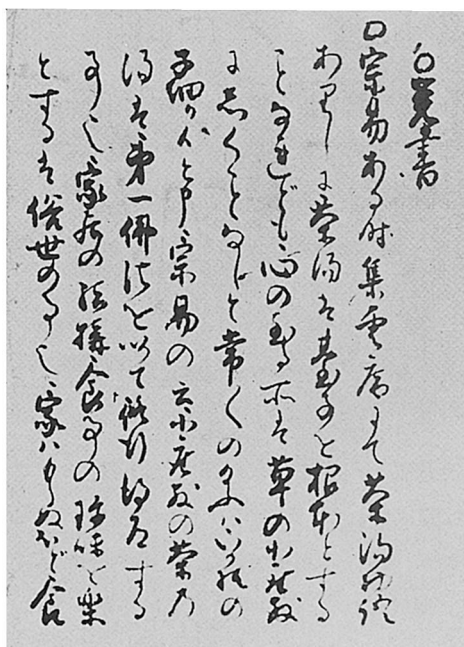 ○覚書
□宗易ある時集雲庵にて茶湯物語
ありしに茶湯は臺子を根本とする
ことなれども心の至る所は草の小座敷
にしくことなしと常〱の給ふハいか様の
子細か候と申宗易の云小座敷の茶の
湯は第一佛法を以て修行得道する
事也家居の結構食事の珍味を楽
とするは俗世の事也家ハもらぬほど食